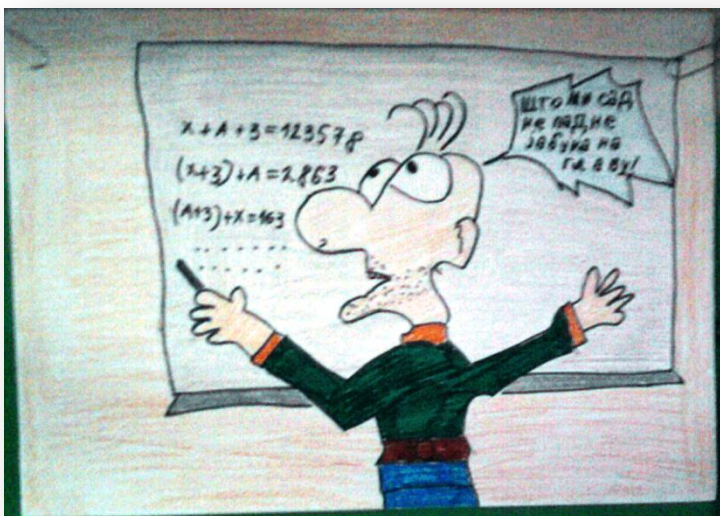 x+A+3=123578
(x+3)+A=2863
(A+3)+x=163
што ми сад
не падне
јабука на
главу!